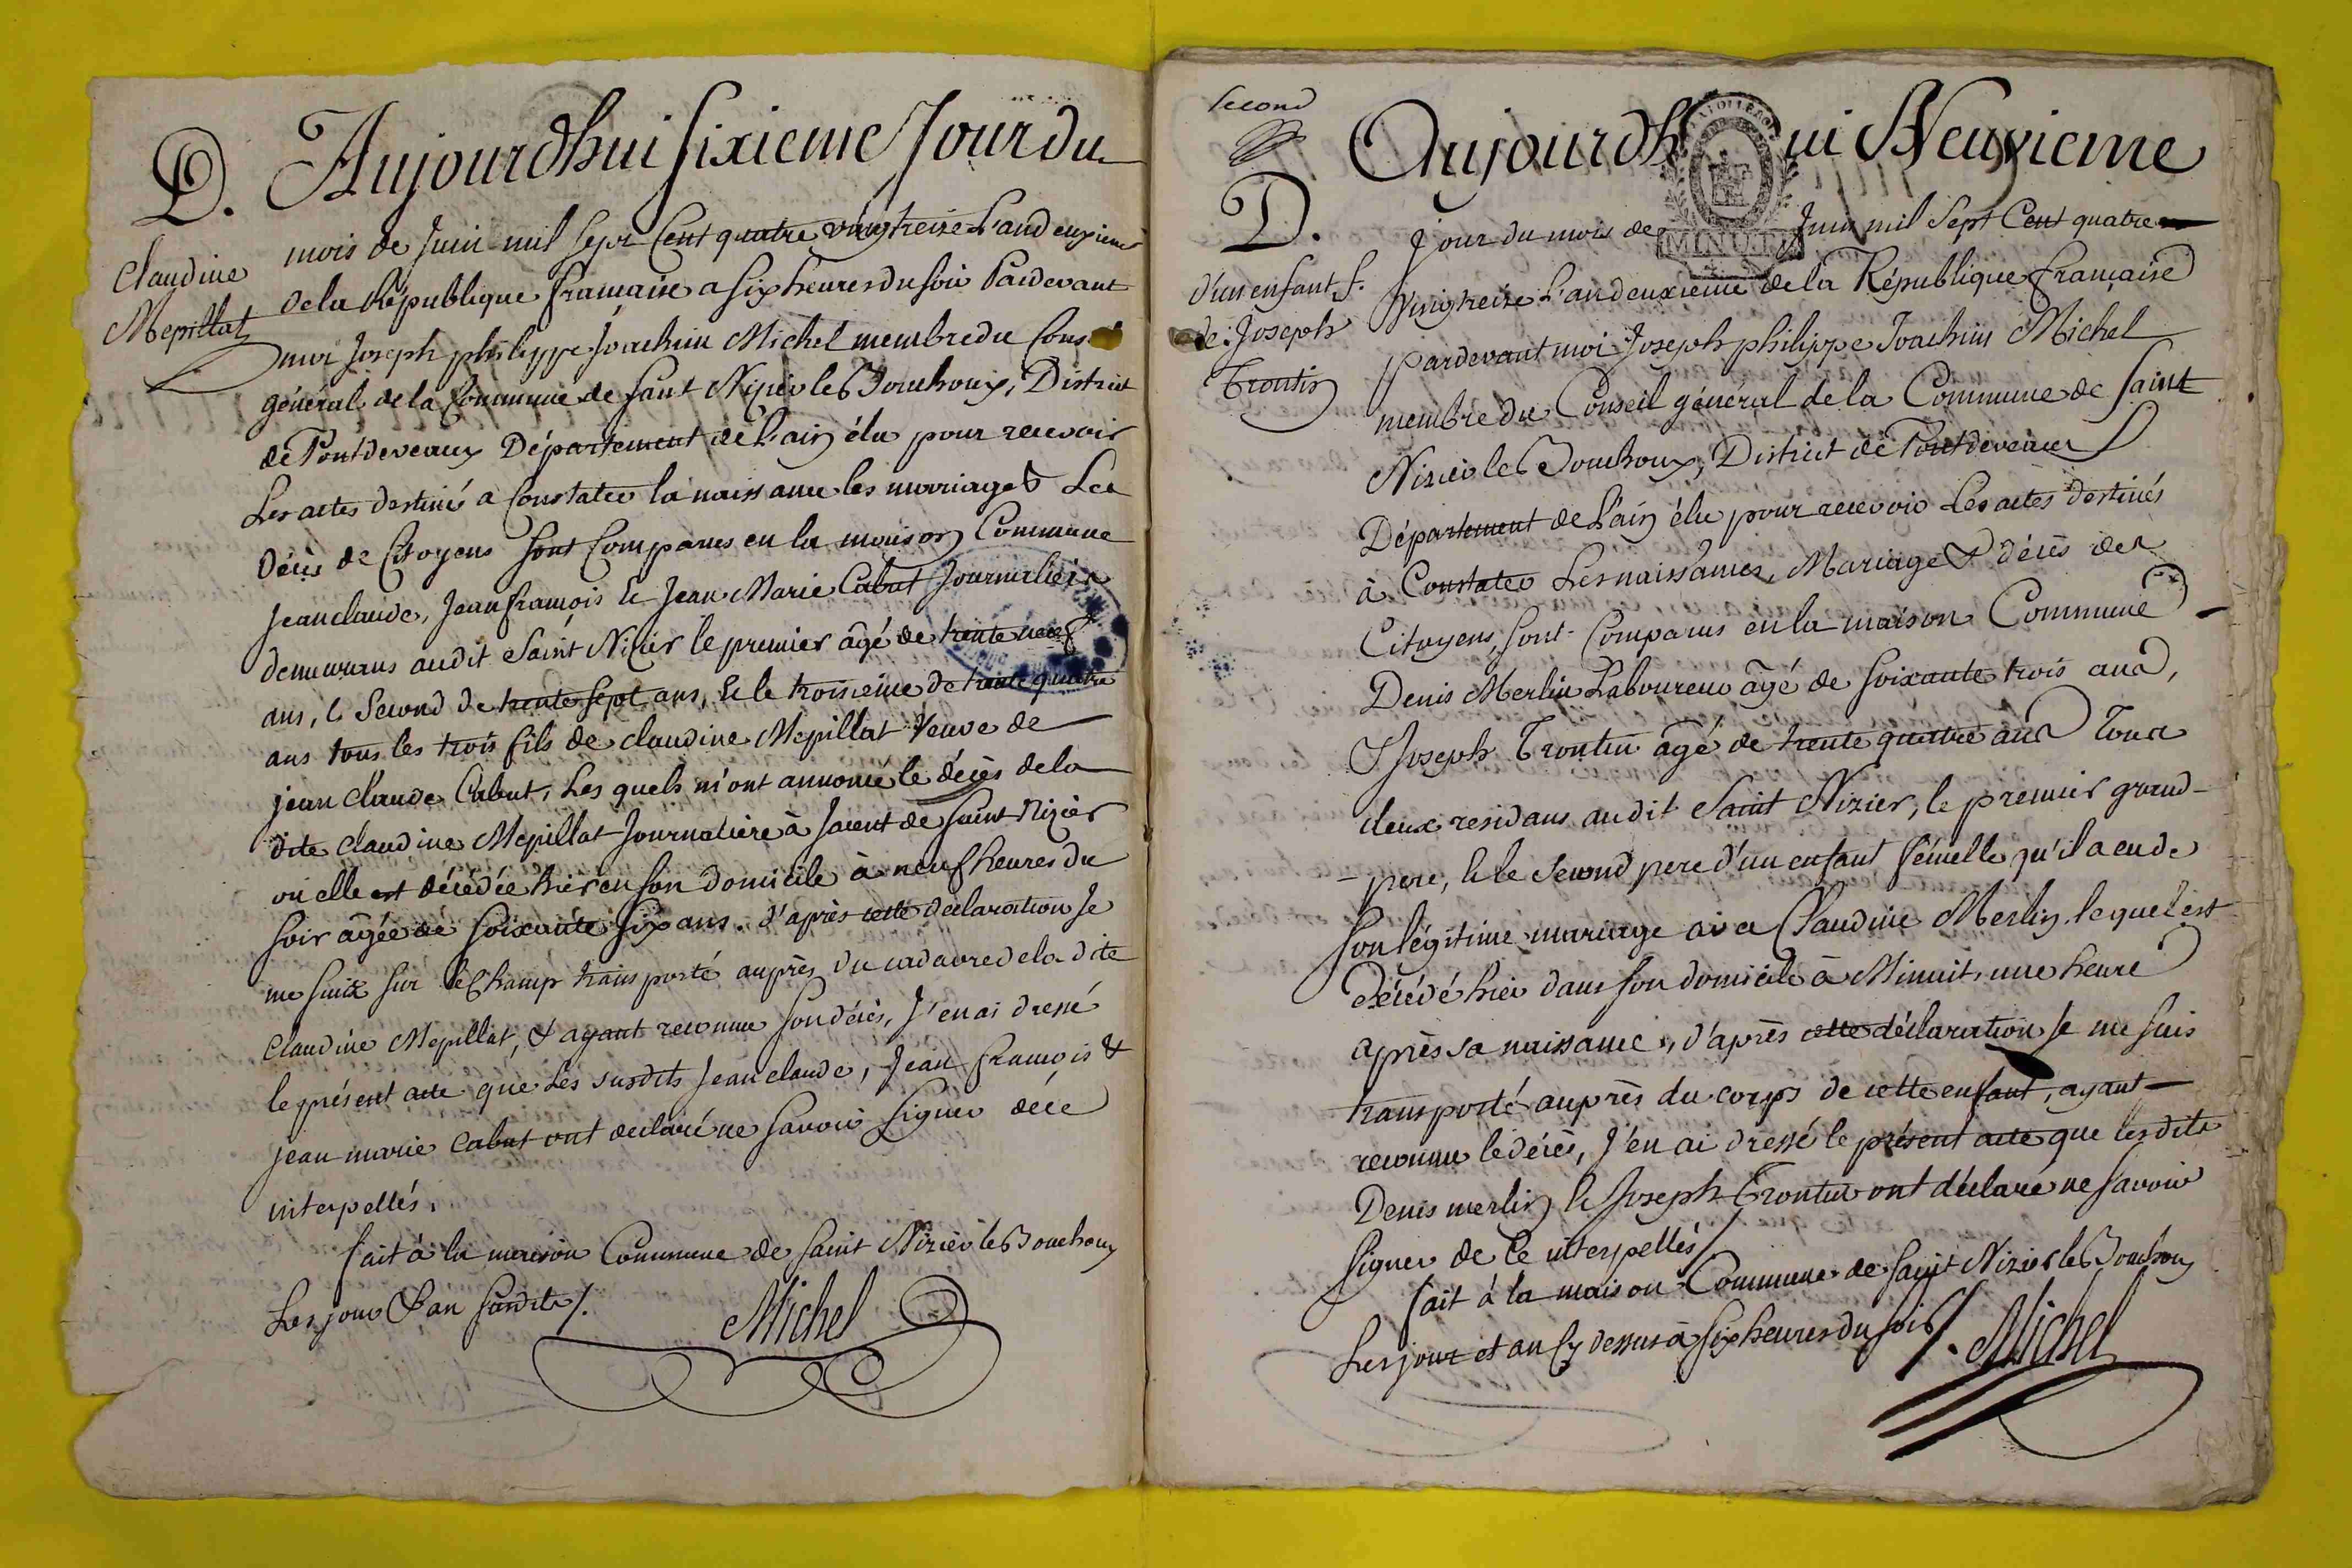 D.
Claudine
Mepillat
Aujourdhui sixieme Jour du
mois de Juin mil sept Cent quatre vingtreize L'and euxieme
de la République francaise a six heures du soir Pardevant
moi Joseph philippe Joachim Michel membre du Cons
général de la Commune de saint Nizier le Bouchoux, District
de Pontdeveaux Département de L'ain élu pour recevoir
Les actes destinés a Constater la naissance les mariages & Les
Décès de Citoyens sont Comparus en la maison Commune
Jean claude, Jean françois & Jean Marie Cabut Journaliers
demeurans audit Saint Nizier le premier âgé de trente neuf
ans, le Second de trente sept ans, & le troisieme de trente quatre
ans tous les trois fils de claudine Mepillat Veuve de
jean Claude Cabut, Les quels m'ont annoncé le décès de la
dite claudine Mepillat Journaliere à Jaient de Saint Nizier
ou elle est décédée hier en son domicile à neuf heures du
soir âgée de soixante six ans. d'après cette declaration Je
me suis sur le Champ transporté auprès du cadavre de la dite
Claudine Mepillat, & ayant reconnu son décès, J'en ai dressé
le présent acte que Les susdits Jean claude, Jean François &
jean marie Cabut ont declaré ne savoir signer de ce
interpellés.
fait à la maison Commune de saint Nizier le Bouchoux
Les jour & an susdits /.
Michel
Second
D.
d'un enfant f.
de Joseph
Trontin
Aujourdhui Neuvieme
MINUTE
Jour du mois de Juin mil Sept Cent quatre
vingtreize L'an deuxieme de la République francaise
pardevant moi Joseph philippe Joachim Michel
membre du Conseil général de la Commune de Saint
Nizier le Bouchoux, District de Pontdeveaux
Département de L'ain élu pour recevoir Les actes destinés
à Constater Les naissances, Mariages & décès des
Citoyens, sont Comparus en la maison Commune
Denis Merlin Laboureur âgé de soixante trois ans,
& Joseph Trontin âgé de trente quatre ans Tous
deux residans audit Saint Nizier, le premier grand-
-pere, & le Second pere d'un enfant fémelle qu'il a eu de
son légitime mariage avec Claudine Merlin, lequel est
décédé hier dans son domicile à Minuit, une heure
après sa naissance, d'après cette déclaration Je me suis
transporté auprès du corps de cette enfant, ayant
reconnu le décès, J'en ai dressé le présent acte que lesdits
Denis merlin & Joseph Trontin ont déclaré ne savoir
signer de ce interpellés /
fait à la maison Commune de Saint Nizier le Bouchoux
Les jour et an cy dessus à six heures du soir /. Michel